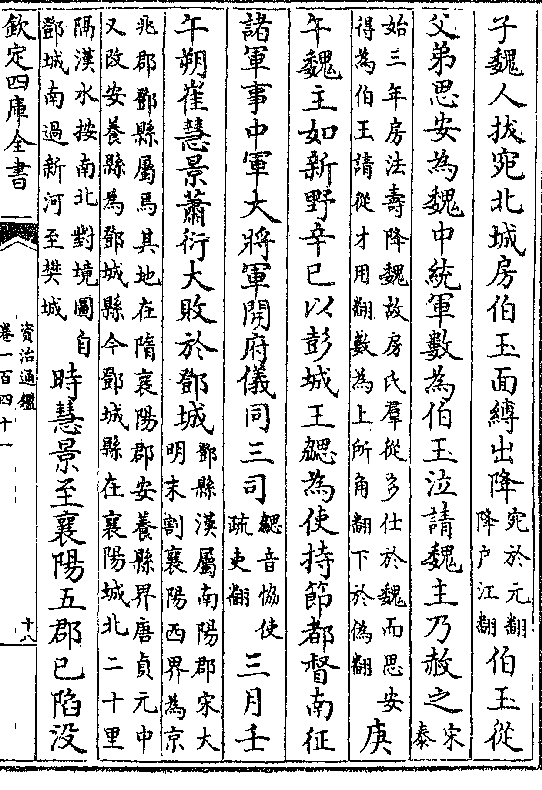 子魏人拔宛北城房伯玉面縛出降宛於元翻降户江翻伯玉從
父弟思安為魏中統軍數為伯玉泣請魏主乃赦之宋泰
始三年房法壽降魏故房氏羣從多仕於魏而思安得為伯玉請從才用翻數為上所角翻下於偽翻庚
午魏主如新野辛巳以彭城王勰為使持節都督南征
諸軍事中軍大將軍開府儀同三司勰音恊使疏吏翻三月壬
午朔崔慧景蕭衍大敗於鄧城鄧縣漢屬南陽郡宋大明末割襄陽西界為京
兆郡鄧縣屬焉其地在隋襄陽郡安養縣界唐貞元中又改安養縣為鄧城縣今鄧城縣在襄陽城北二十里
隔漢水按南北對境圖自鄧城南過新河至樊城時慧景至襄陽五郡已陷没
欽定四庫全書
資治通鑑
卷一百四十一
十八